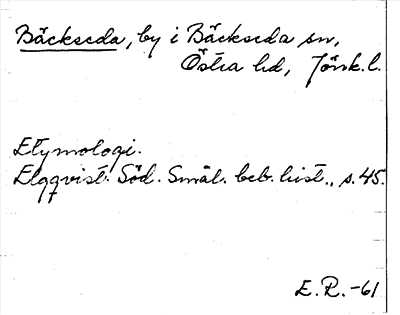 Bäckseda, by i Bäckseda sn,
Östra hd, Jönk. l.
Etymologi.
Elgqvist. Söd. Smål. beb. hist., s. 45.
E. R. -61